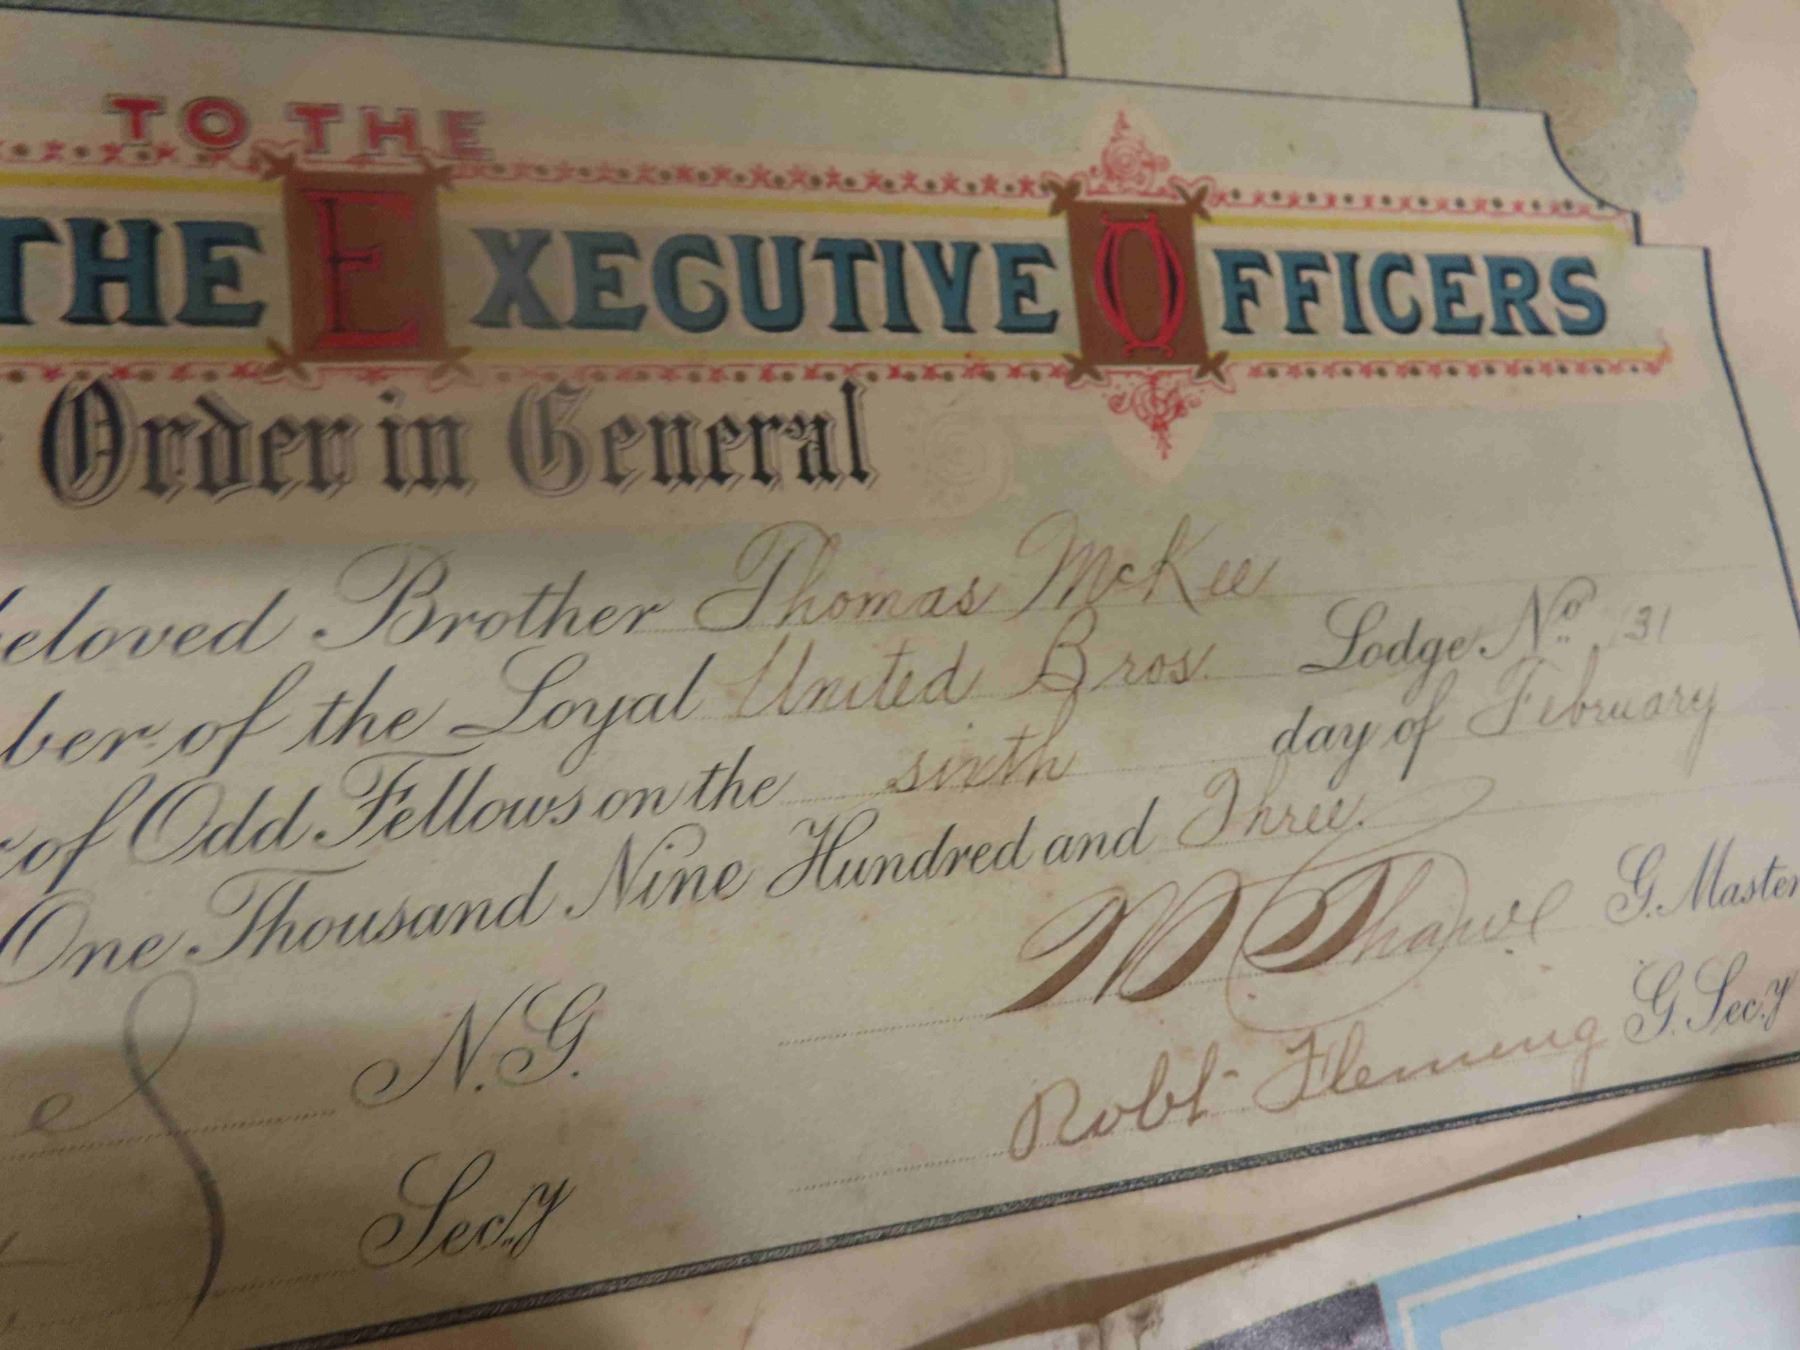 TO THE
THE EXECUTIVE OFFICERS
Order in General
beloved Brother Thomas McKee
ber of the Loyal United Bros. Lodge No. 31
of Odd Fellows on the sixth day of February
One Thousand Nine Hundred and Three.
G. Master
N.G.
Robt Fleming G. Sec.y
Sec.y